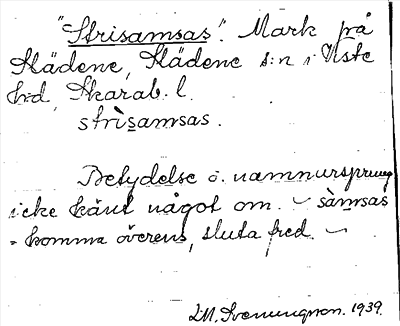 "Strisamsas". Mark på
Slädene, Slädene s:n i Viste
h:d, Skarab. l.
strìsamsas.
Betydelse o. namnursprung
icke känt något om. ~ sàmsas
= komma överens, sluta fred. ~
L.M. Svenungsson. 1939.